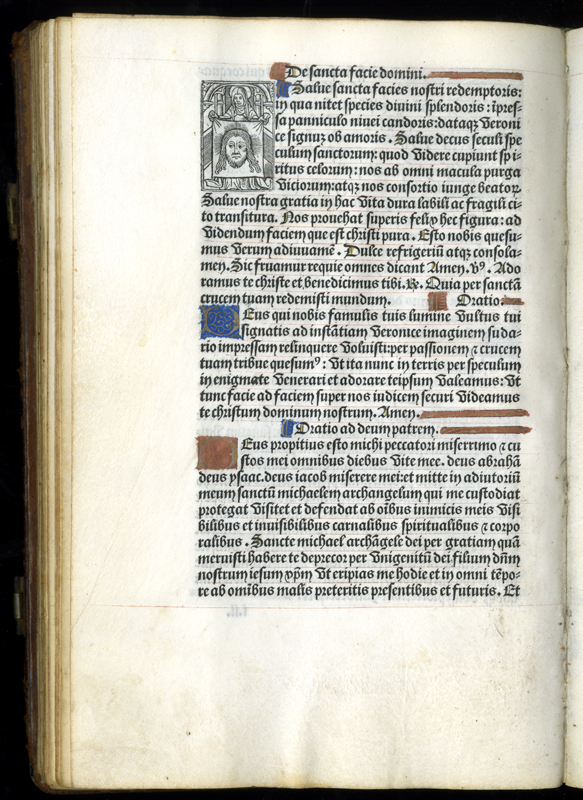 De sancta facie domini.
Salue sancta facies nostri redemptoris:
in qua nitet species diuini splendoris: īpres-
sa panniculo niuei candoris: dataqꝫ veroni
ce signuꝫ ob amoris. Salue decus seculi spe
culum sanctorum: quod videre cupiunt spi-
ritus celorum: nos ab omni macula purga
viciorum: atqꝫ nos consortio iunge beatoꝝ.
Salue nostra gratia in hac vita dura labili ac fragili ci-
to transitura. Nos prouehat superis felix hec figura: ad
videndum faciem que est christi pura. Esto nobis quesu-
mus verum adiuuamē. Dulce refrigeriū atqꝫ consola-
men. Sic fruamur requie omnes dicant Amen. ꝟ⁹. Ado
ramus te christe et benedicimus tibi. ℞. Quia per sanctā
crucem tuam redemisti mundum. Oratio.
Eus qui nobis famulis tuis lumine vultus tui
signatis ad instātiam veronice imaginem suda-
rio impressam relinquere voluisti: per passionem ⁊ crucem
tuam tribue quesum⁹: vt ita nunc in terris per speculum
in enigmate venerari et adorare teipsum valeamus: vt
tunc facie ad faciem super nos iudicem securi videamus
te christum dominum nostrum. Amen.
Oratio ad deum patrem.
Eus propitius esto michi peccatori miserrimo ⁊ cu
stos mei omnibus diebus vite mee. deus abrahā
deus ysaac. deus iacob miserere mei: et mitte in adiutoriū
meum sanctū michaelem archangelum qui me custodiat
protegat visitet et defendat ab oībus inimicis meis visi
bilibus et inuisibilibus carnalibus spiritualibus ⁊ corpo
ralibus. Sancte michael archāgele dei per gratiam quā
meruisti habere te deprecor per vnigenitū dei filium dn̄m
nostrum iesum xp̄m vt eripias me hodie et in omni tēpo-
re ab omnibus malis preteritis presentibus et futuris. Et